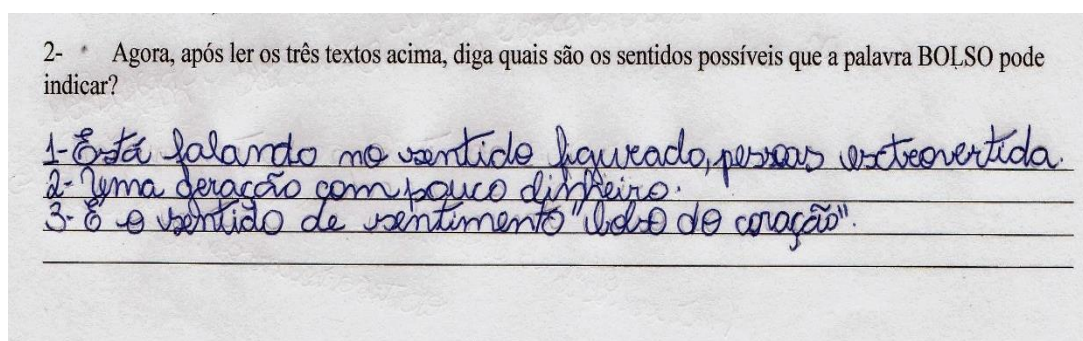 2- Agora, após ler os três textos acima, diga quais são os sentidos possíveis que a palavra BOLSO pode
indicar?
1- Está falando no sentido figurado, pessoas exctrovertida.
2- Uma geracção com pouco dinheiro.
3- É o sentido de sentimento "bolso do coração".